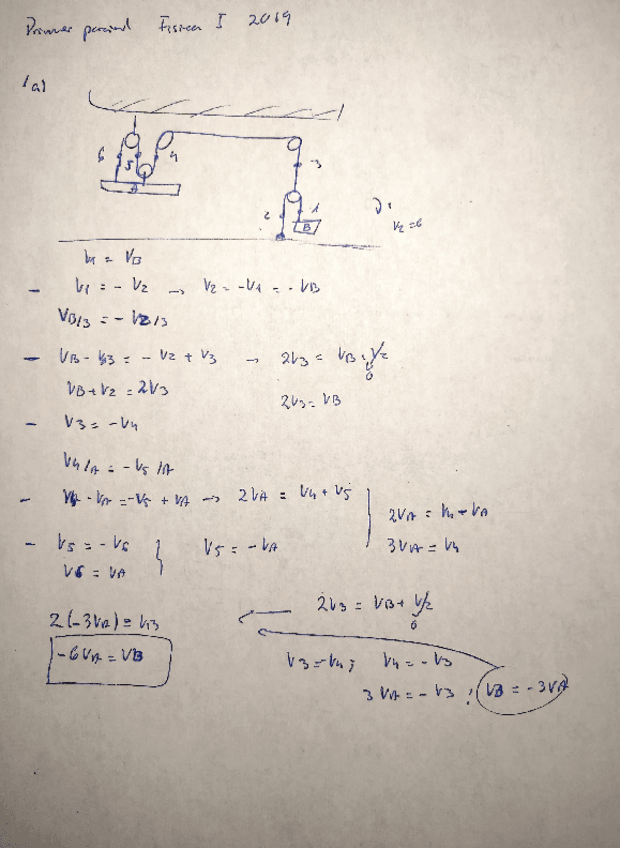 Primer parcial Fisica I 2019
1a)
6 5 4 3
A 2 1 B
V2 = 0
V1 = VB
- V1 = - V2 → V2 = - V1 = - VB
VB/3 = - V2/3
- VB - V3 = - V2 + V3 → 2V3 = VB + V2
0
VB + V2 = 2V3
2V3 = VB
- V3 = - V4
V4/A = - V5/A
- V4 - VA = - V5 + VA → 2VA = V4 + V5
2VA = V4 - VA
3VA = V4
- V5 = - V6
V6 = VA
V5 = - VA
2V3 = VB + V2
0
2(-3VA) = VB
-6VA = VB
V3 = - V4 ; V4 = - V3
3VA = - V3 ; V3 = - 3VA